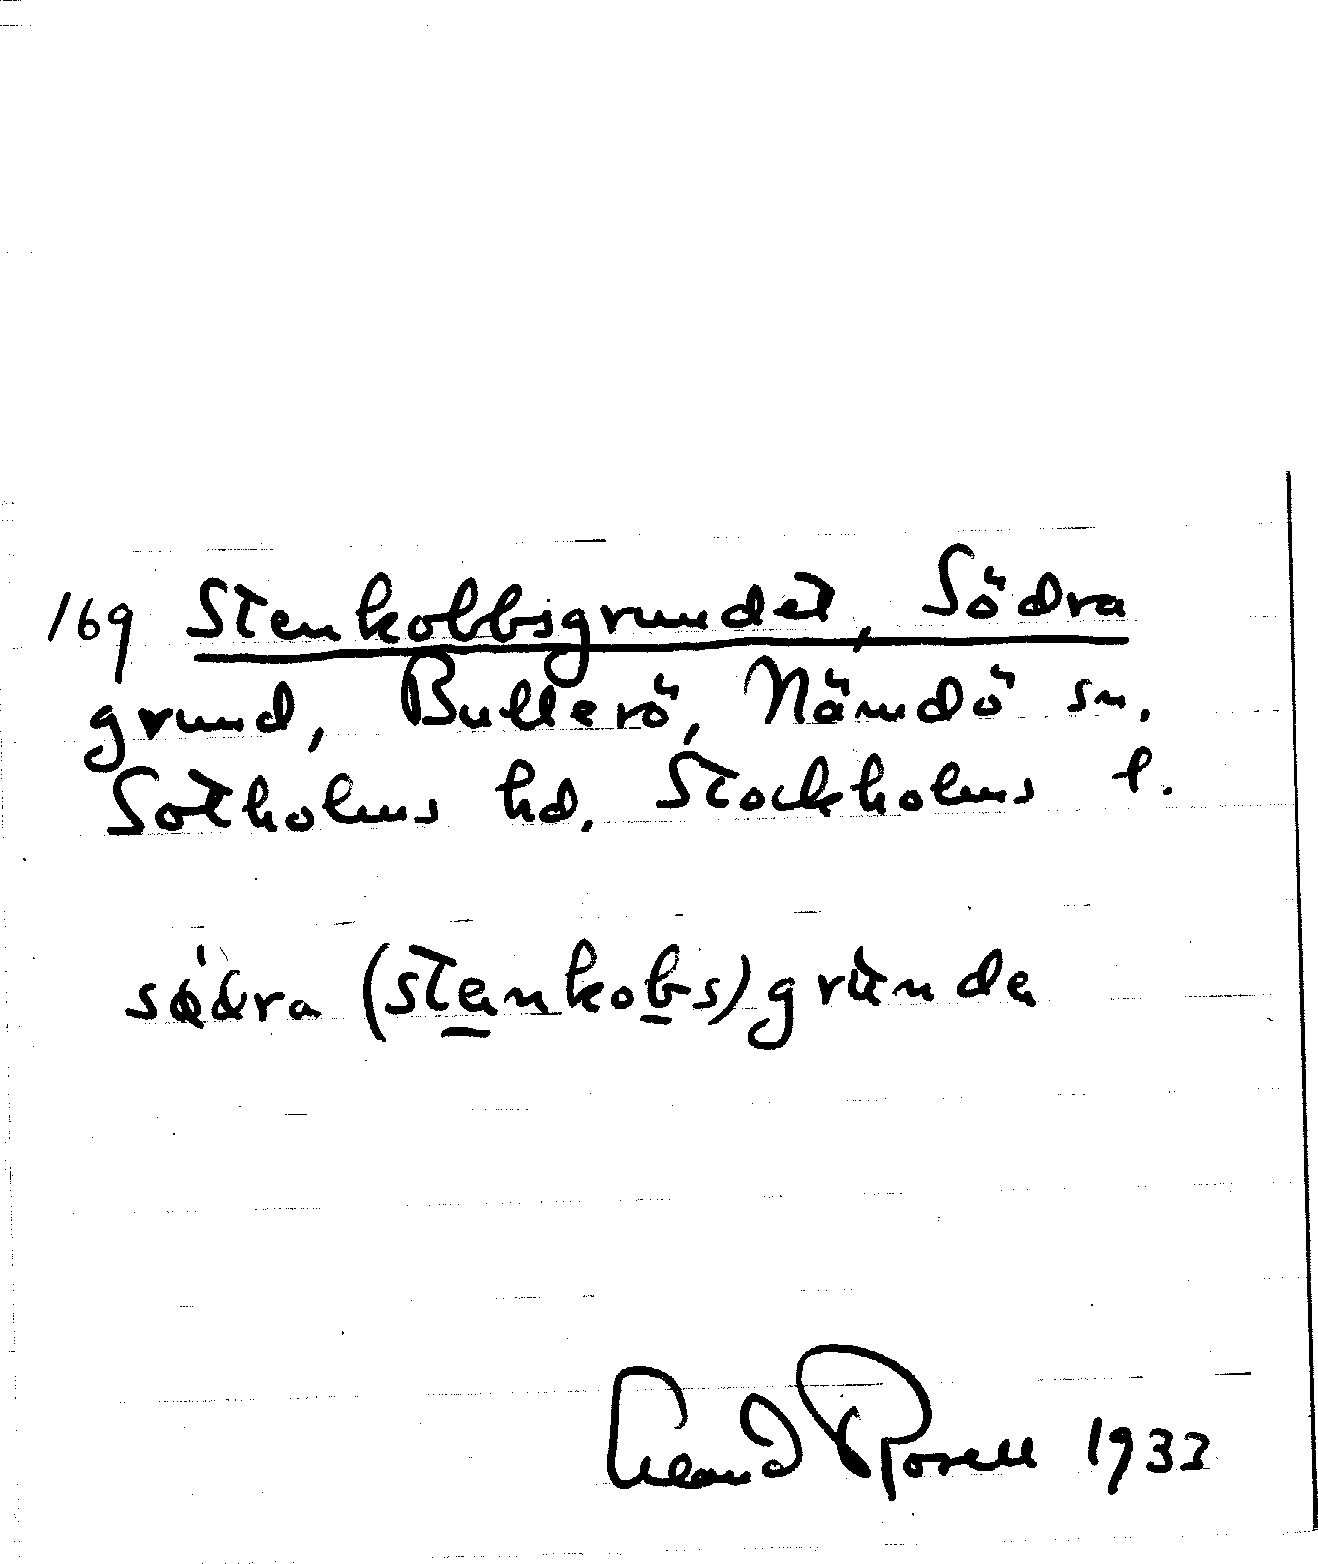 169 Stenkobbsgrundet, Södra
grund, Bullerö, Nämdö sn.
Sotholms hd. Stockholms l.
södra (stenkobs) grùnde
Rosell 1933